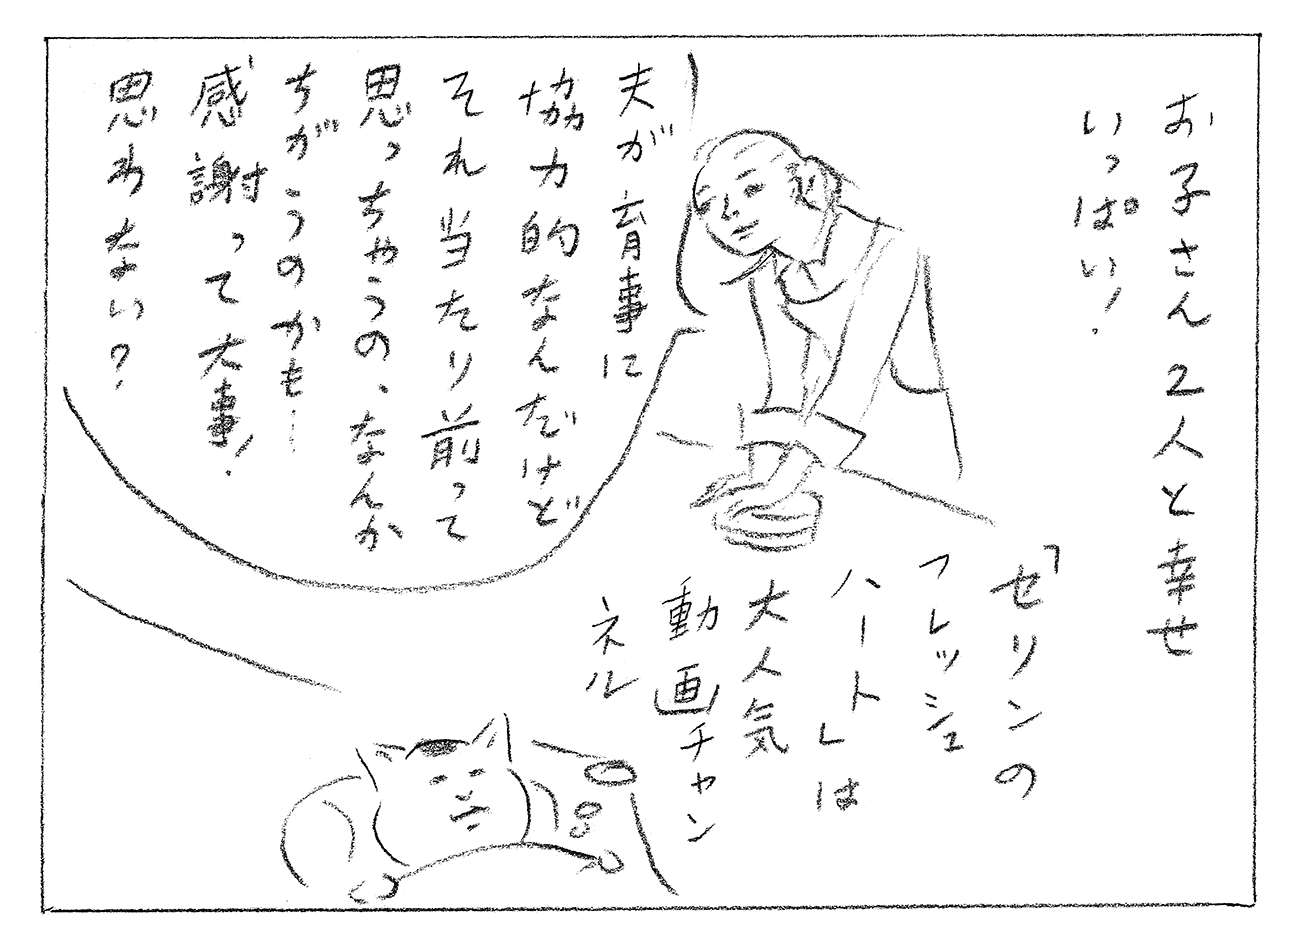 お子さん2人と幸せ
いっぱい！
「ゼリンの
フレッシュ
ハート」は
大人気
動画チャン
ネル
夫が育事に
協力的なんだけど
それ当たり前って
思っちゃうの、なんか
ちがうのかも…
感謝って大事！
思わない？